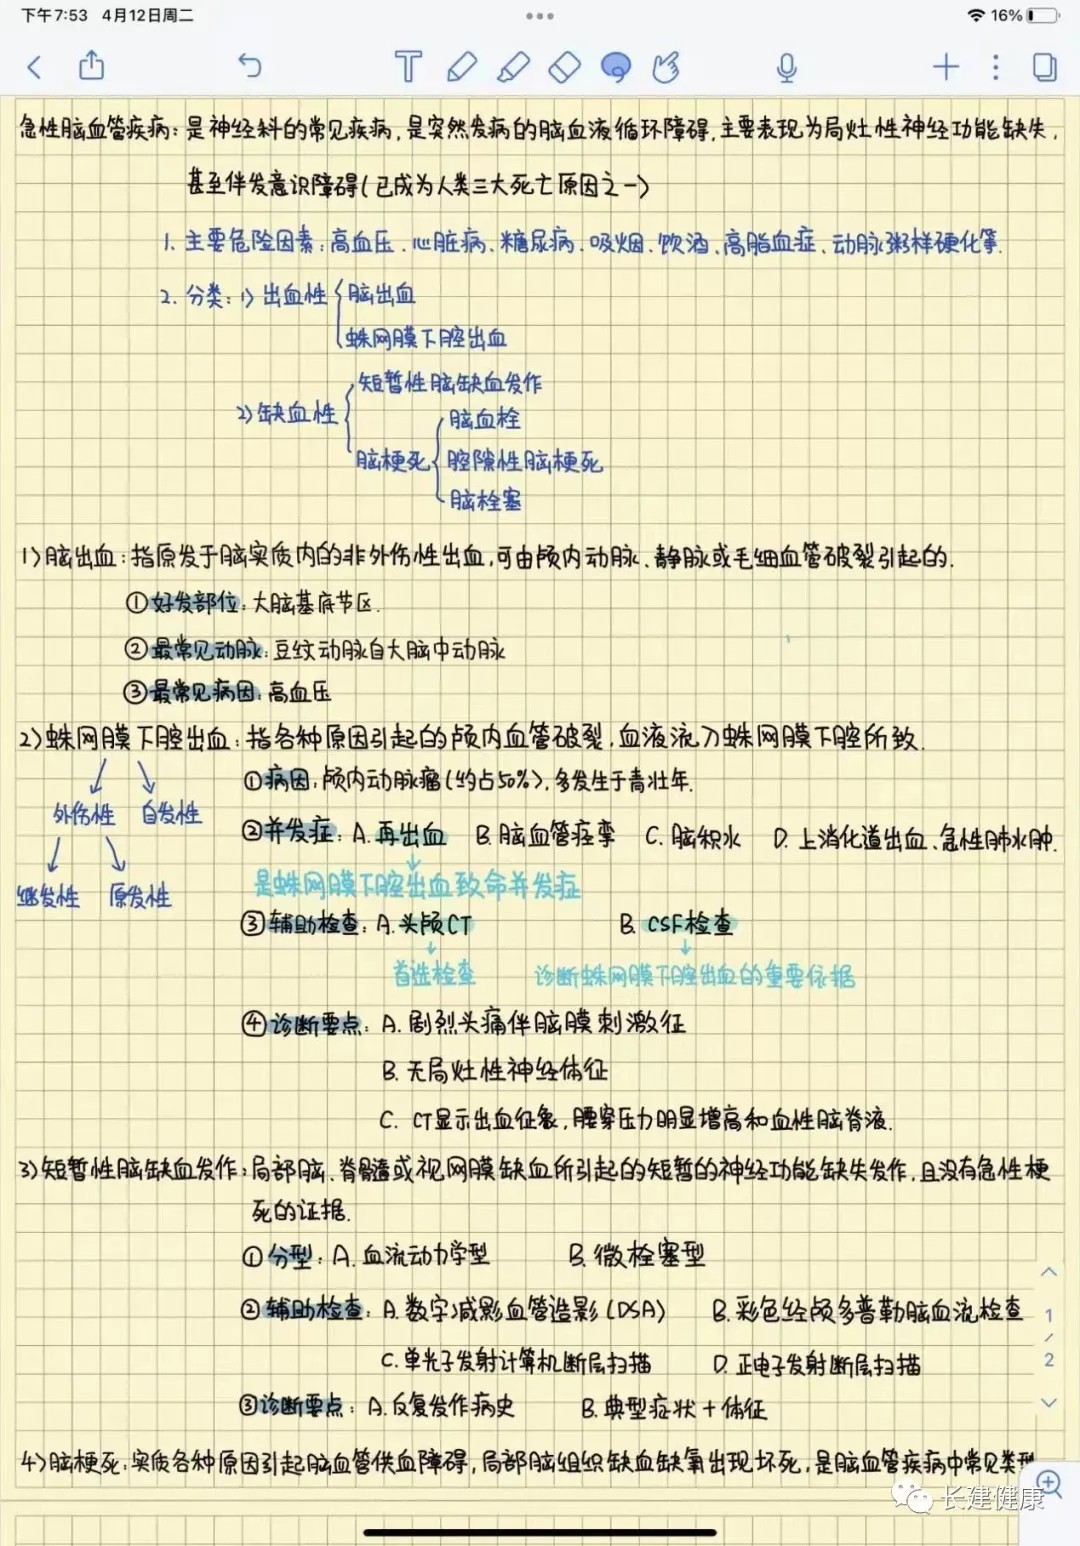 下午7:53 4月12日周二
16%
急性脑血管疾病：是神经科的常见疾病，是突然发病的脑血液循环障碍，主要表现为局灶性神经功能缺失，
甚至伴发意识障碍(已成为人类三大死亡原因之一)
1. 主要危险因素：高血压、心脏病、糖尿病、吸烟、饮酒、高脂血症、动脉粥样硬化等.
2. 分类：1) 出血性 脑出血
蛛网膜下腔出血
短暂性脑缺血发作
2) 缺血性
脑血栓
脑梗死 腔隙性脑梗死
脑栓塞
1) 脑出血：指原发于脑实质内的非外伤性出血，可由颅内动脉、静脉或毛细血管破裂引起的.
① 好发部位：大脑基底节区.
② 最常见动脉：豆纹动脉自大脑中动脉
③ 最常见病因：高血压
2) 蛛网膜下腔出血：指各种原因引起的颅内血管破裂，血液流入蛛网膜下腔所致.
① 病因：颅内动脉瘤(约占50%)，多发生于青壮年.
外伤性 自发性
② 并发症：A. 再出血 B. 脑血管痉挛 C. 脑积水 D. 上消化道出血、急性肺水肿.
继发性 原发性
是蛛网膜下腔出血致命并发症
③ 辅助检查：A. 头颅CT B. CSF检查
首选检查 诊断蛛网膜下腔出血的重要依据
④ 诊断要点：A. 剧烈头痛伴脑膜刺激征
B. 无局灶性神经体征
C. CT显示出血征象，腰穿压力明显增高和血性脑脊液.
3) 短暂性脑缺血发作：局部脑、脊髓或视网膜缺血所引起的短暂的神经功能缺失发作，且没有急性梗
死的证据.
① 分型：A. 血流动力学型 B. 微栓塞型
② 辅助检查：A. 数字减影血管造影(DSA) B. 彩色经颅多普勒脑血流检查
1
/
2
C. 单光子发射计算机断层扫描 D. 正电子发射断层扫描
③ 诊断要点：A. 反复发作病史 B. 典型症状+体征
4) 脑梗死：实质各种原因引起脑血管供血障碍，局部脑组织缺血缺氧出现坏死，是脑血管疾病中常见类型
长建健康